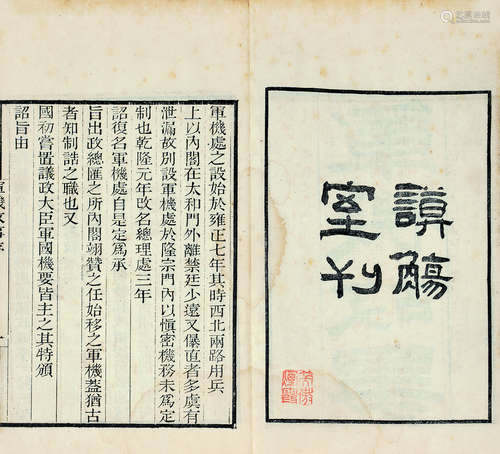 謨觴
室刊
軍機處之設始於雍正七年其時西北兩路用兵
上以內閣在太和門外離禁廷少遠又儤直者多慮有
泄漏故別設軍機處於隆宗門內以愼密機務未爲定
制也乾隆元年改名總理處三年
詔復名軍機處自是定爲承
旨出政總匯之所內閣翊贊之任始移之軍機蓋猶古
者知制誥之職也又
國初嘗置議政大臣軍國機要皆主之其特頒
詔旨由